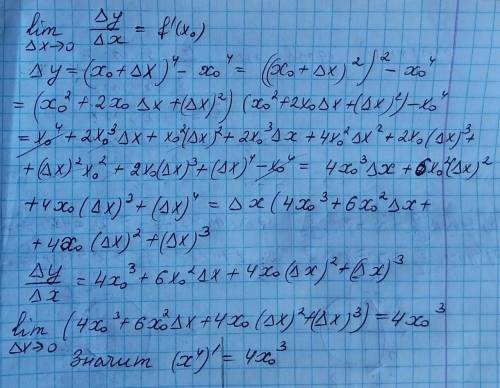 lim Δx→0 Δy/Δx = f'(x₀)
Δy = (x₀ + Δx)⁴ − x₀⁴ = ((x₀ + Δx)²)² − x₀⁴
= (x₀² + 2x₀ Δx + (Δx)²) (x₀² + 2x₀Δx + (Δx)²) − x₀⁴
= x₀⁴ + 2x₀³Δx + x₀²(Δx)² + 2x₀³Δx + 4x₀²Δx² + 2x₀(Δx)³ +
+ (Δx)²x₀² + 2x₀(Δx)³ + (Δx)⁴ − x₀⁴ = 4x₀³Δx + 6x₀²(Δx)²
+ 4x₀(Δx)³ + (Δx)⁴ = Δx(4x₀³ + 6x₀²Δx +
+ 4x₀(Δx)² + (Δx)³
Δy/Δx = 4x₀³ + 6x₀²Δx + 4x₀(Δx)² + (Δx)³
lim Δx→0 (4x₀³ + 6x₀²Δx + 4x₀(Δx)² + (Δx)³) = 4x₀³
Значит (x⁴)' = 4x₀³